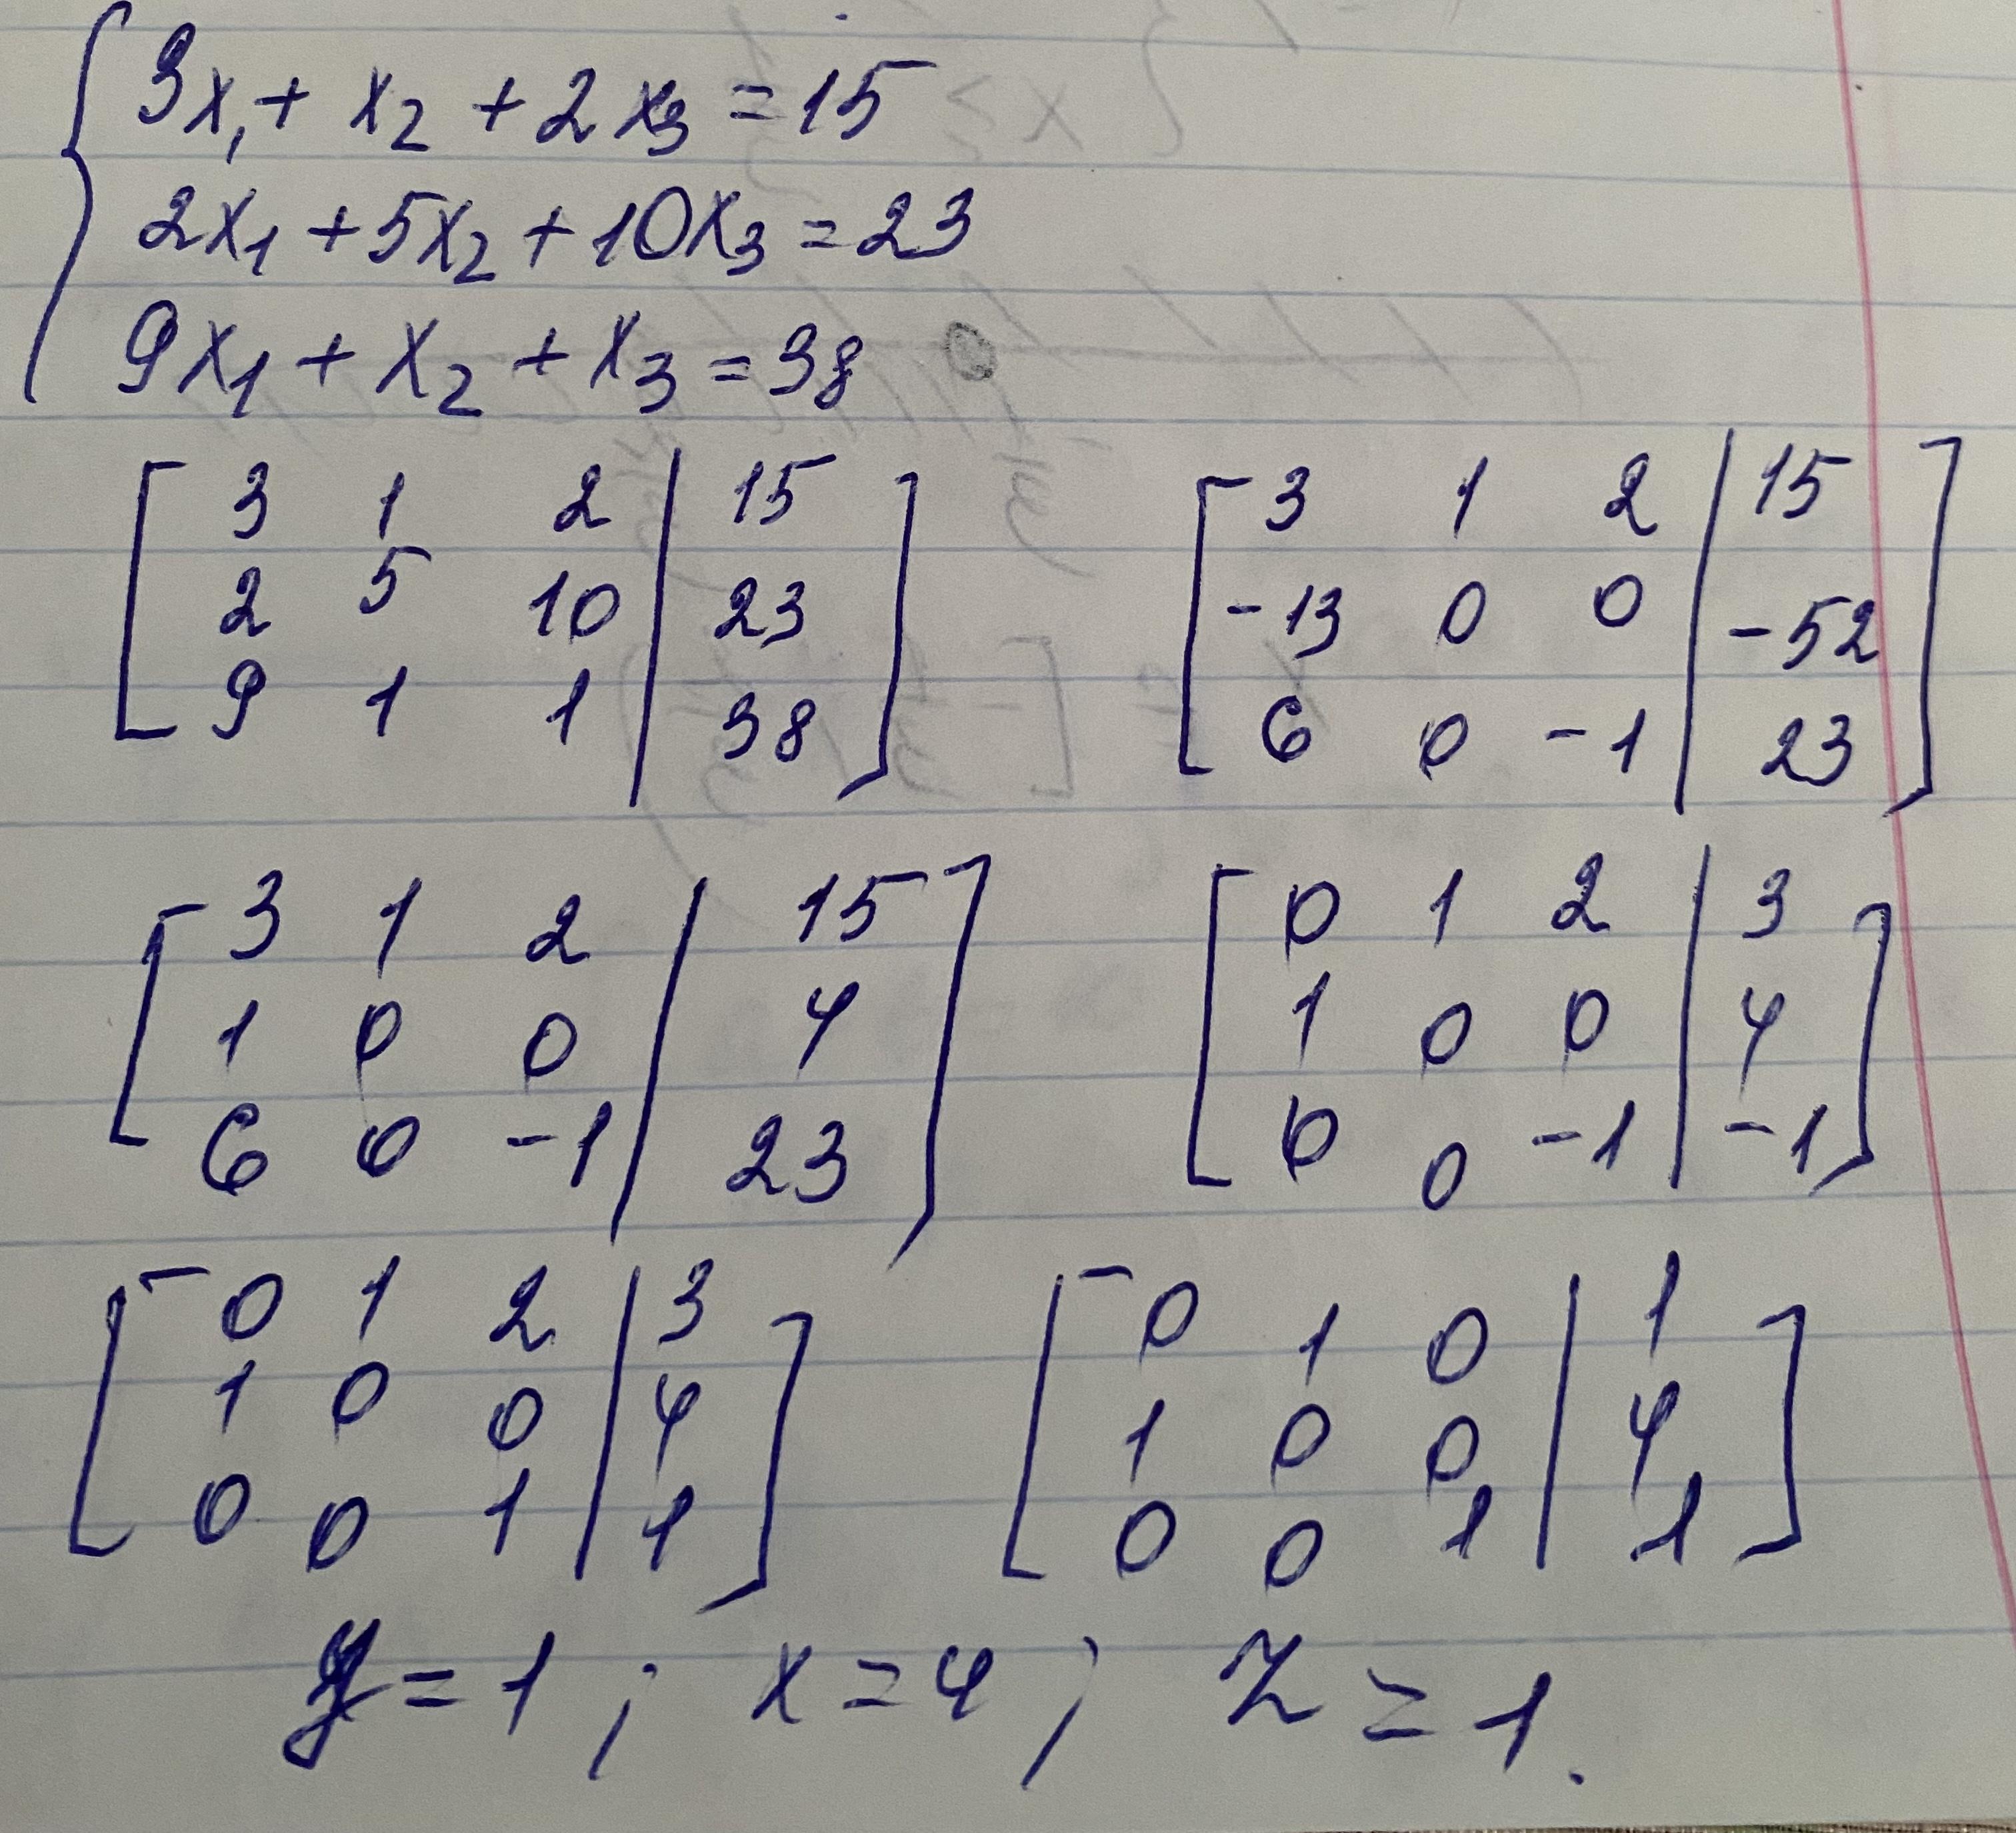 3x₁ + x₂ + 2x₃ = 15
2x₁ + 5x₂ + 10x₃ = 23
9x₁ + x₂ + x₃ = 38
3 1 2 | 15
2 5 10 | 23
9 1 1 | 38
3 1 2 | 15
-13 0 0 | -52
6 0 -1 | 23
3 1 2 | 15
1 0 0 | 4
6 0 -1 | 23
0 1 2 | 3
1 0 0 | 4
0 0 -1 | -1
0 1 2 | 3
1 0 0 | 4
0 0 1 | 1
0 1 0 | 1
1 0 0 | 4
0 0 1 | 1
y = 1 ; x = 4 ; z = 1.